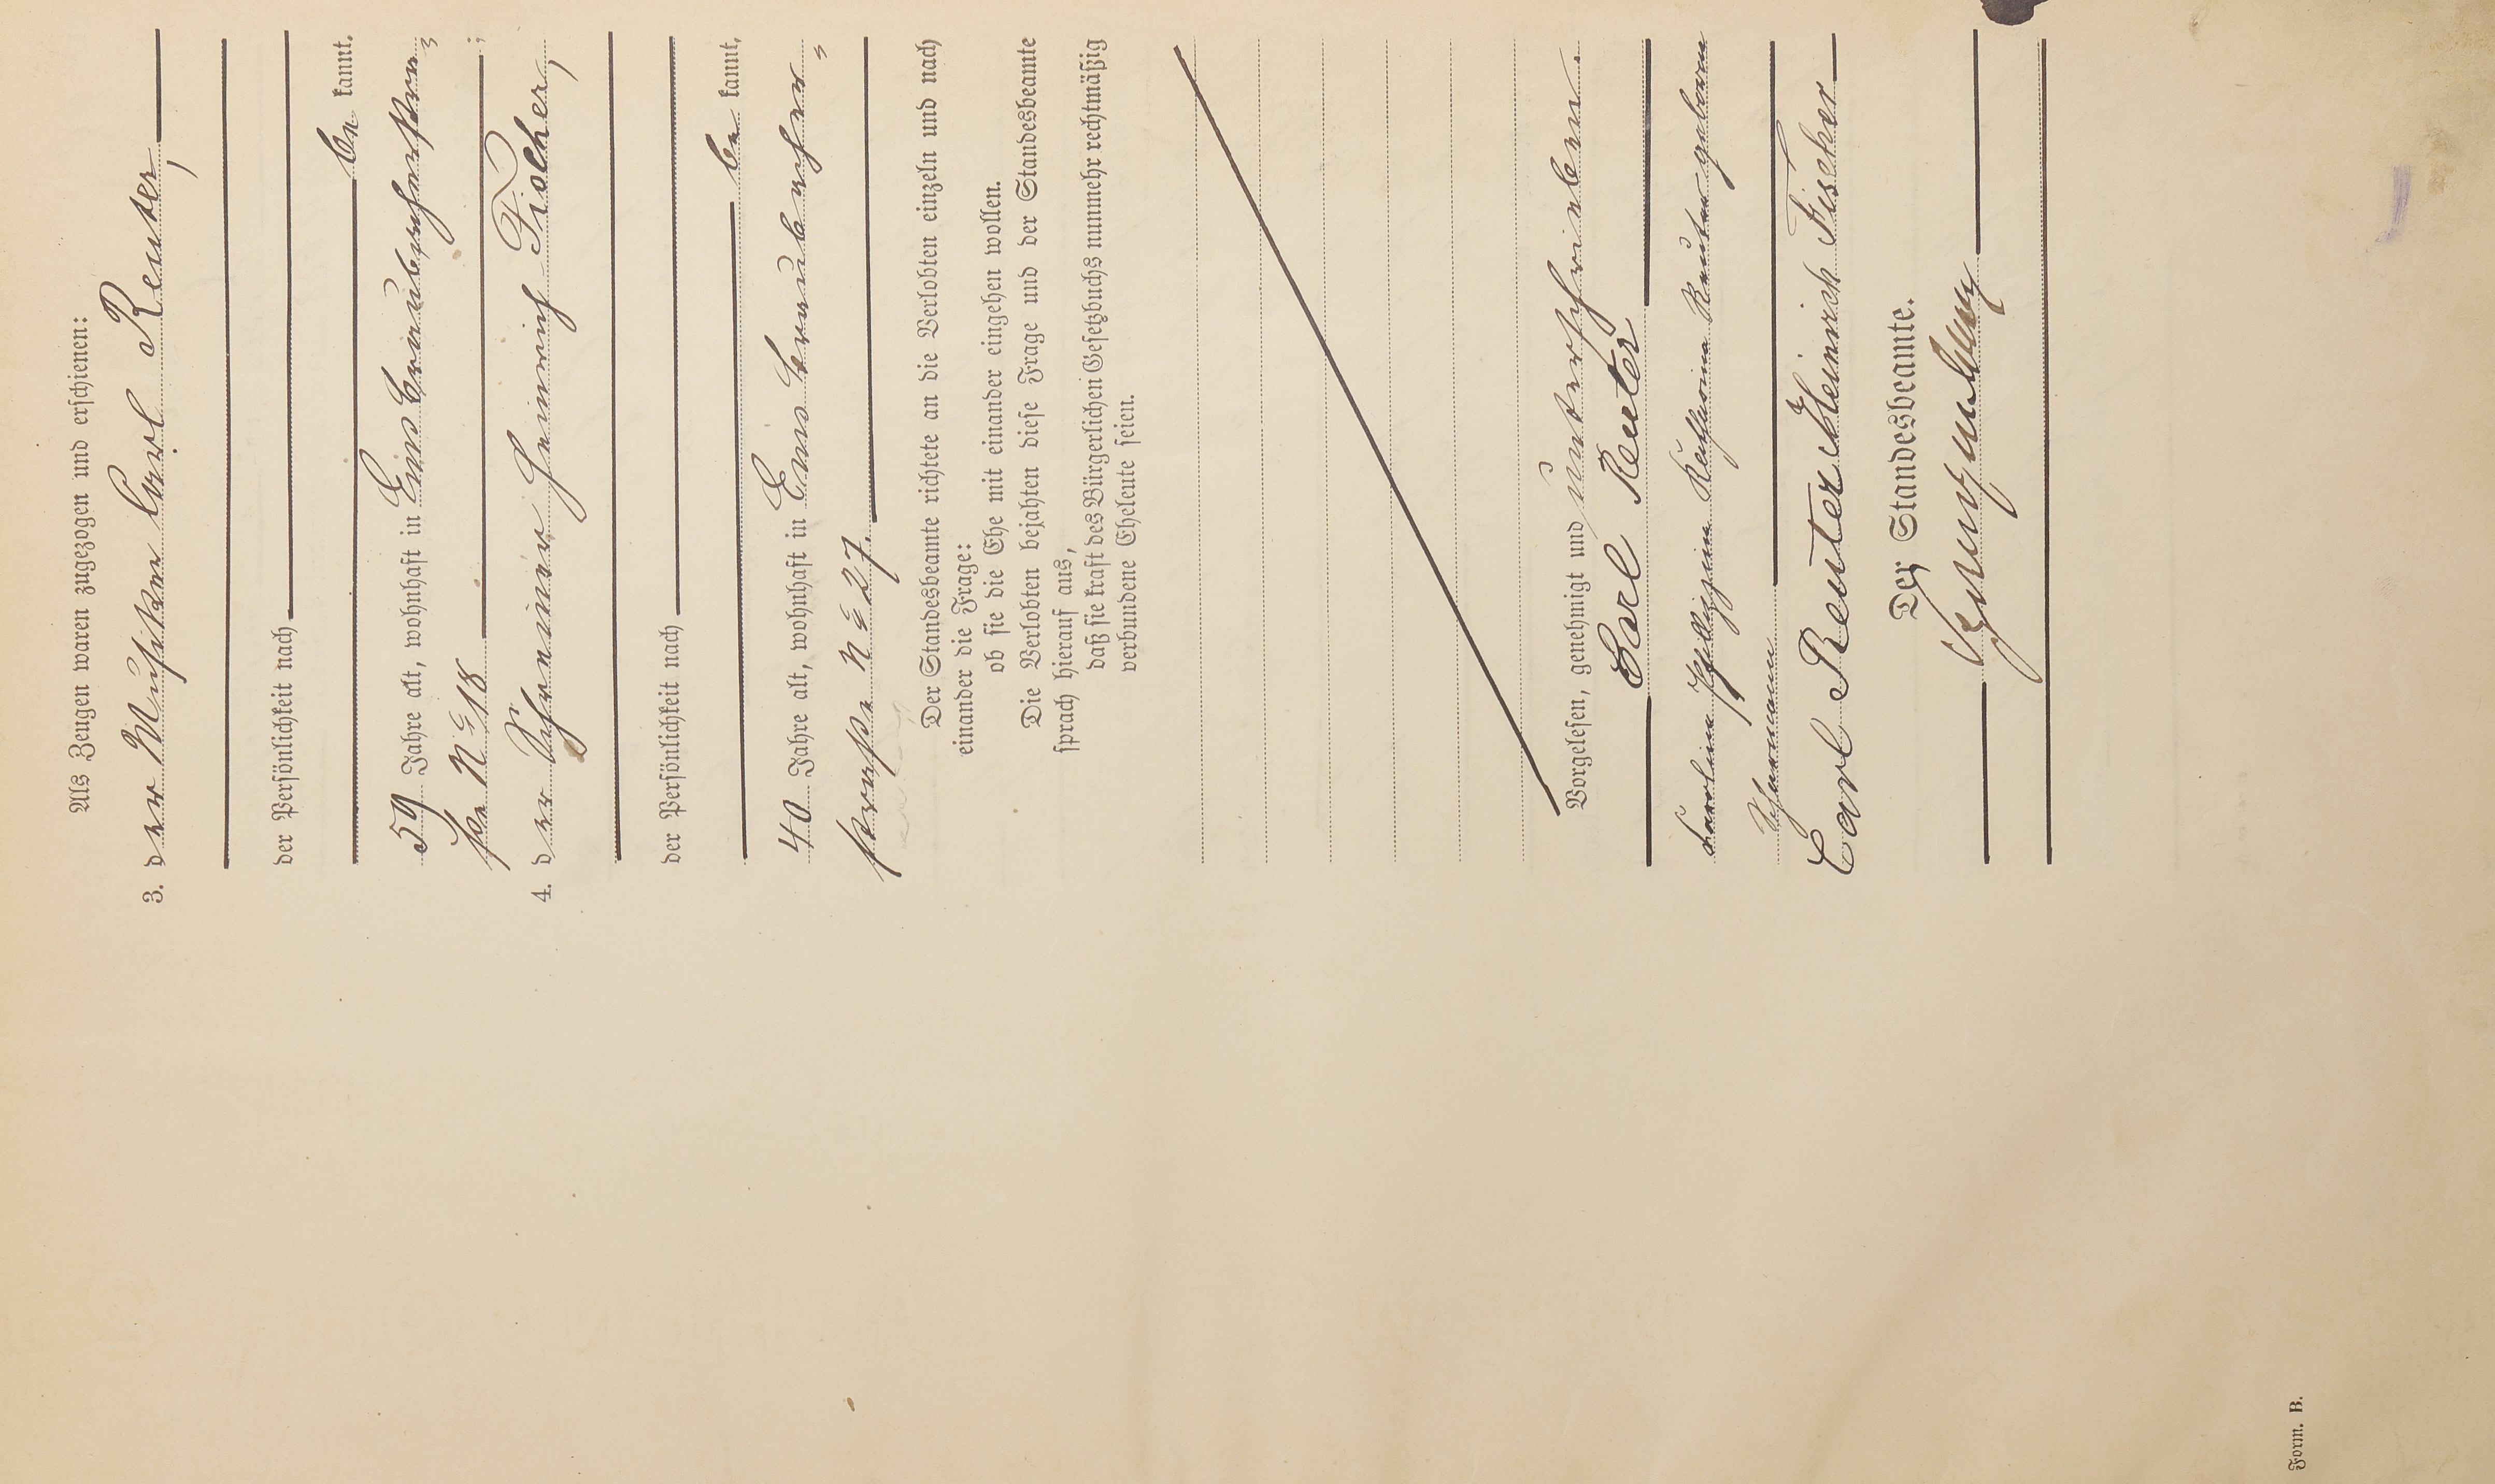 Als Zeugen waren zugezogen und erschienen:
3. der Musiker Carl Reuter,
der Persönlichkeit nach
be kannt,
59 Jahre alt, wohnhaft in Ems Graubacherstra-
ße No 18 ;
4. der Schreiner Heinrich Fischer,
der Persönlichkeit nach
be kannt,
40 Jahre alt, wohnhaft in Ems Graubacher-
straße No 27.
Der Standesbeamte richtete an die Verlobten einzeln und nach
einander die Frage:
ob sie die Ehe mit einander eingehen wollen.
Die Verlobten bejahten diese Frage und der Standesbeamte
sprach hierauf aus,
daß sie kraft des Bürgerlichen Gesetzbuchs nunmehr rechtmäßig
verbundene Eheleute seien.
Vorgelesen, genehmigt und unterschrieben.
Carl Reuter
Karoline Katharina Reuter geborene
Carl Reuter Heinrich Fischer
Der Standesbeamte.
Form. B.